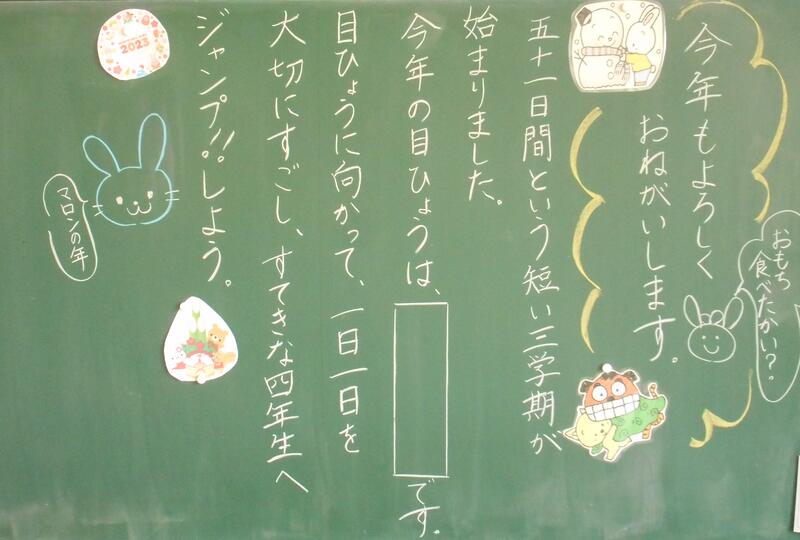 今年もよろしく
おねがいします。
おもち
食べたかい?。
五十一日間という短い三学期が
始まりました。
今年の目ひょうは、 です。
目ひょうに向かって、一日一日を
大切にすごし、すてきな四年生へ
ジャンプ!!しよう。
2023
マロンの年